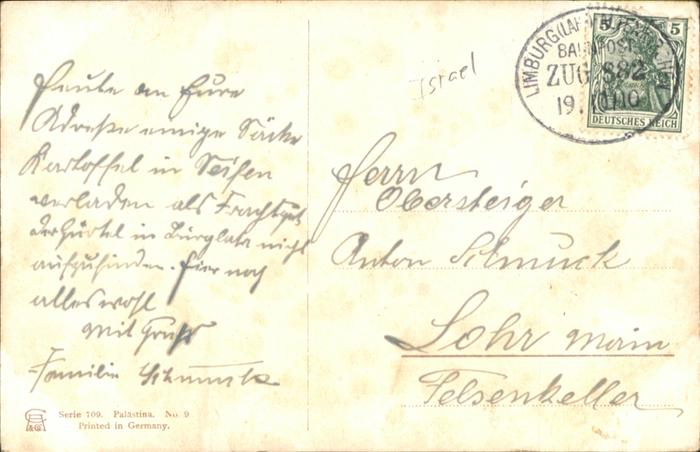 Heute an Eure
Adresse einige Säcke
Kartoffel in Seifen
verladen als Frachtgut
der Gürtel in Burglahr nicht
aufzufinden. Hier noch
alles wohl
Mit Gruß
Familie Schmuck
Israel
LIMBURG (LAHN)
BAHNPOST
ZUG 882
19. 10 10
5 5
DEUTSCHES REICH
Herrn
Obersteiger
Anton Schmuck
Lohr Main
Felsenkeller
Serie 709. Palästina. No. 9
Printed in Germany.